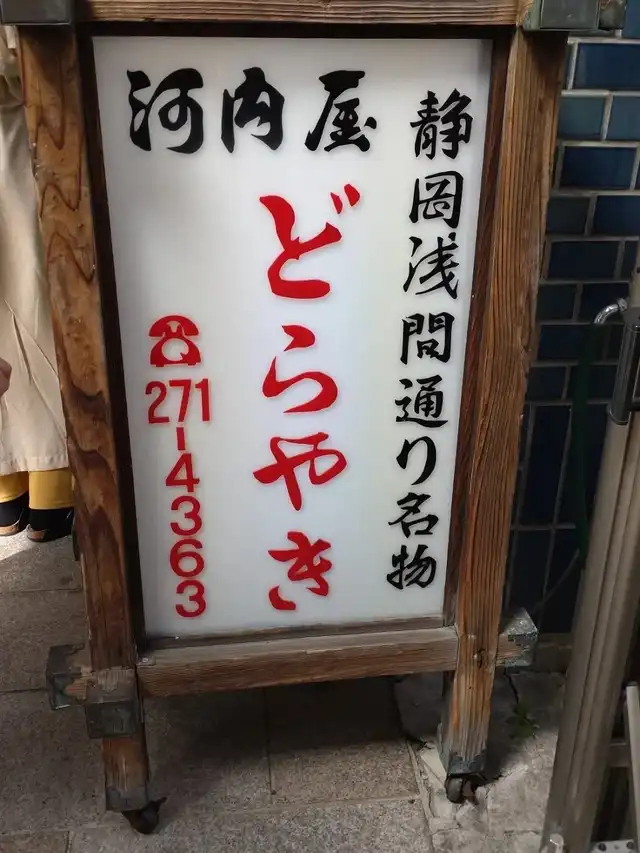 河内屋
静岡浅間通り名物
どらやき
☎271-4363